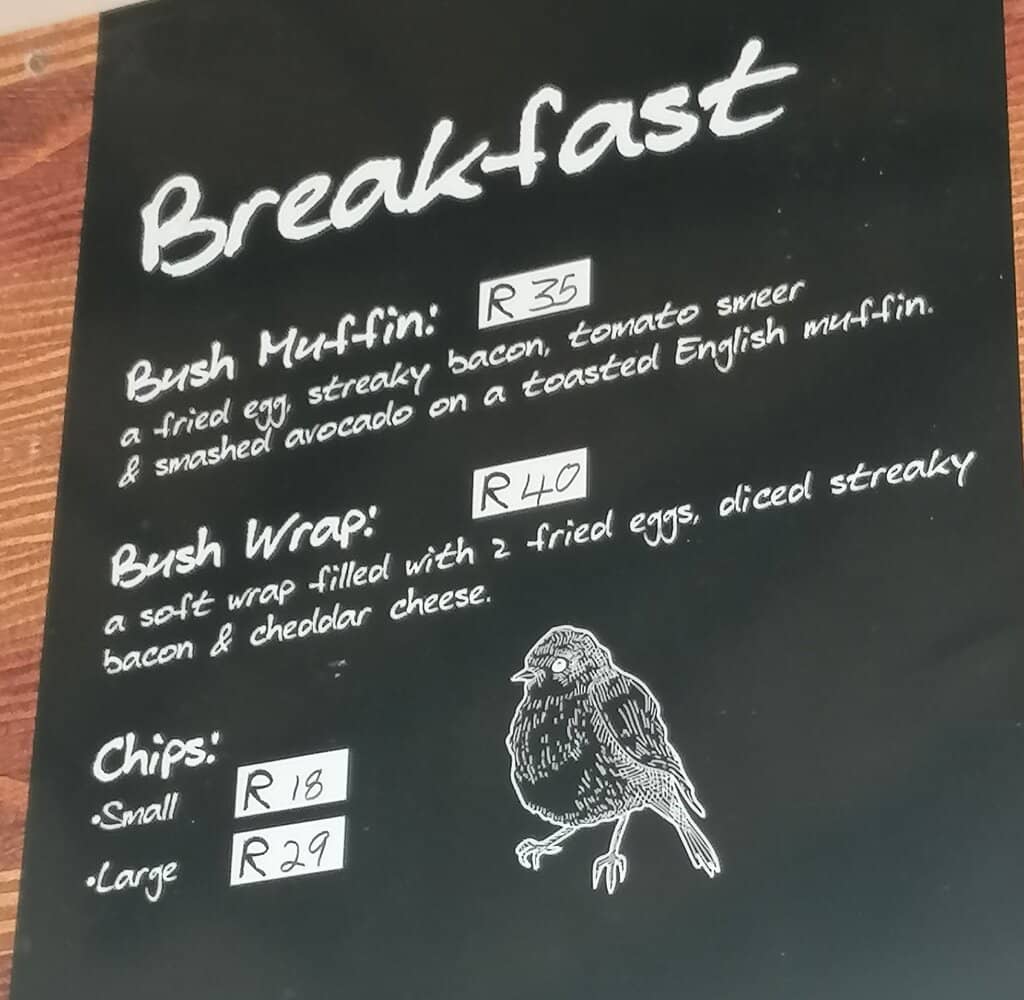 Breakfast
Bush Muffin: R 35
a fried egg, streaky bacon, tomato smeer
& smashed avocado on a toasted English muffin.
Bush Wrap: R 40
a soft wrap filled with 2 fried eggs, diced streaky
bacon & cheddar cheese.
Chips:
•Small R 18
•Large R 29